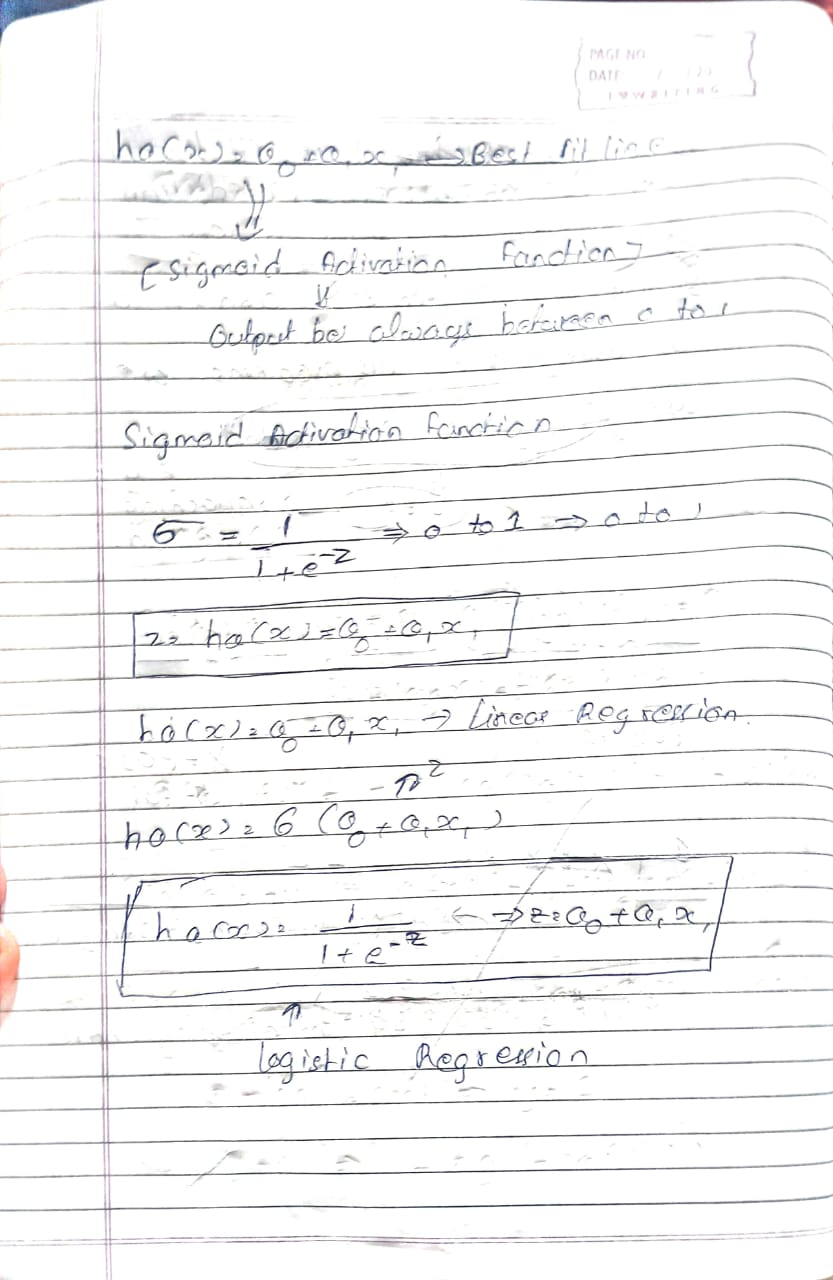 PAGE NO
DATE / / 20
hθ(x) = θ₀ + θ₁ x₁ → Best fit line
⇓
[Sigmoid Activation Function]
⇓
Output be always between 0 to 1
Sigmoid Activation function
σ = 1 / (1 + e^-z) ⇒ 0 to 1 ⇒ 0 to 1
z = hθ(x) = θ₀ + θ₁ x₁
hθ(x) = θ₀ + θ₁ x₁ → Linear Regression.
hθ(x) = σ (θ₀ + θ₁ x₁)
hθ(x) = 1 / (1 + e^-z) ← ⇒ z = θ₀ + θ₁ x₁
↑
logistic Regression